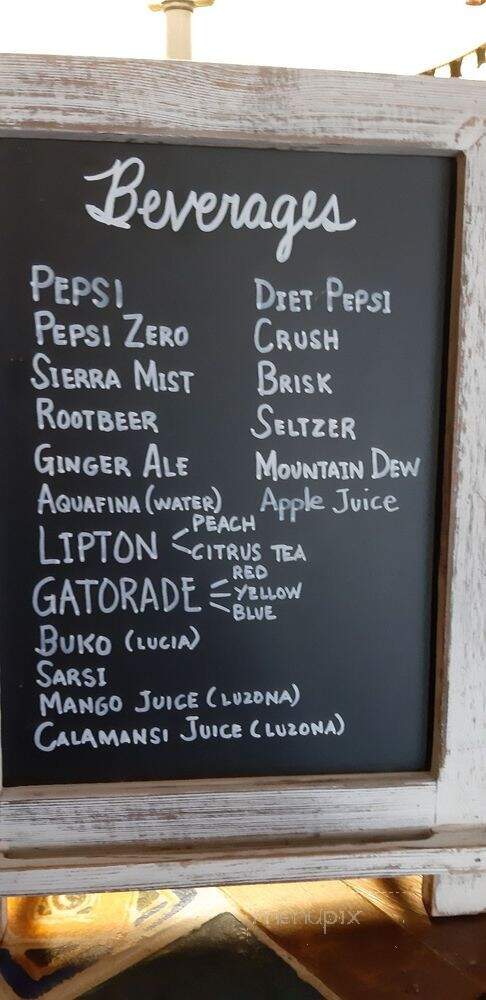 Beverages
PEPSI DIET PEPSI
PEPSI ZERO CRUSH
SIERRA MIST BRISK
ROOTBEER SELTZER
GINGER ALE MOUNTAIN DEW
AQUAFINA (WATER) Apple Juice
LIPTON PEACH
CITRUS TEA
GATORADE RED
YELLOW
BLUE
BUKO (LUCIA)
SARSI
MANGO JUICE (LUZONA)
CALAMANSI JUICE (LUZONA)
menupix